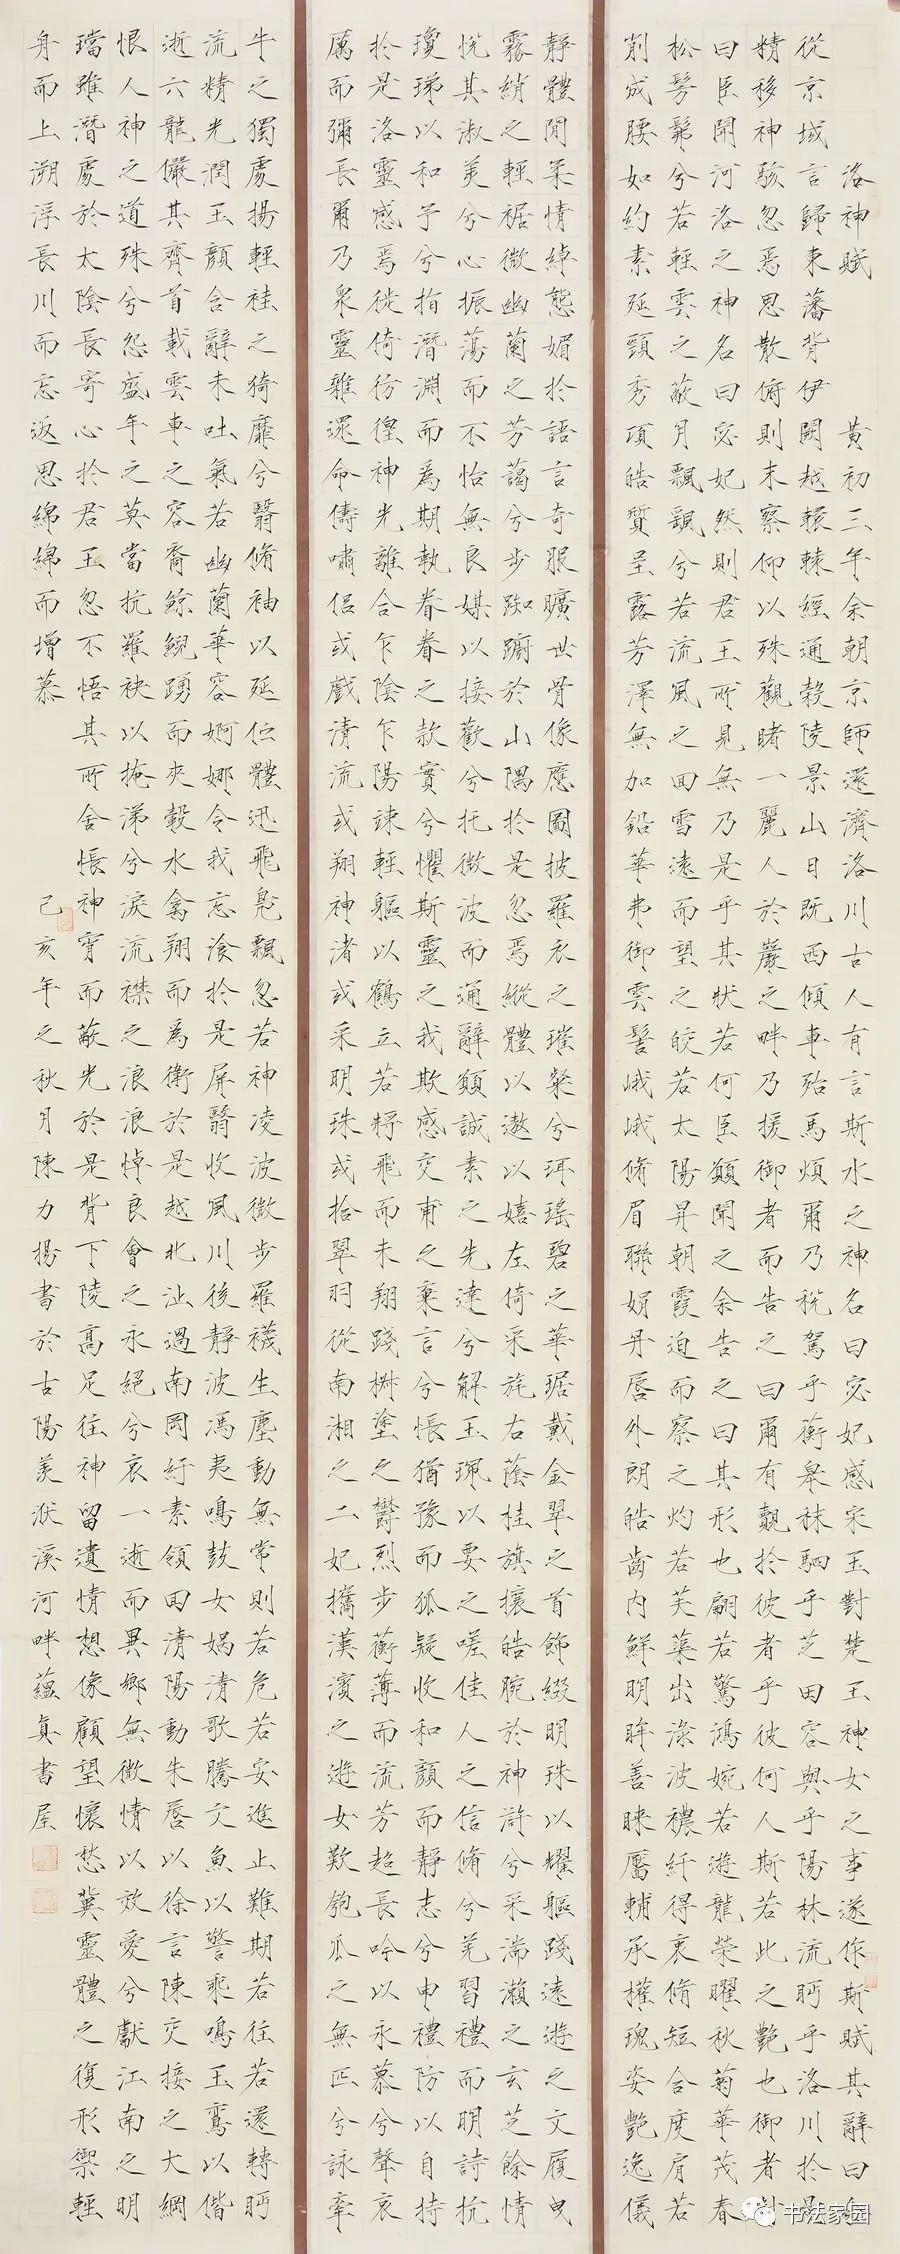 洛神賦　黃初三年余朝京師還濟洛川古人有言斯水之神名曰宓妃感宋玉對楚王神女之事遂作斯賦其辭曰
從京城言歸東藩背伊闕越轘轅經通穀陵景山日既西傾車殆馬煩爾乃稅駕乎蘅皋秣駟乎芝田容與乎陽林流眄乎洛川於是
精移神駭忽焉思散俯則未察仰以殊觀睹一麗人於巖之畔乃援御者而告之曰爾有覿於彼者乎彼何人斯若此之艷也御者對
曰臣聞河洛之神名曰宓妃然則君王所見無乃是乎其狀若何臣願聞之余告之曰其形也翩若驚鴻婉若遊龍榮曜秋菊華茂春
松髣髴兮若輕雲之蔽月飄颻兮若流風之回雪遠而望之皎若太陽昇朝霞迫而察之灼若芙蕖出淥波襛纖得衷修短合度肩若
削成腰如約素延頸秀項皓質呈露芳澤無加鉛華弗御雲髻峨峨修眉聯娟丹唇外朗皓齒內鮮明眸善睞靨輔承權瑰姿艷逸儀
靜體閒柔情綽態媚於語言奇服曠世骨像應圖披羅衣之璀粲兮珥瑤碧之華琚戴金翠之首飾綴明珠以耀軀踐遠遊之文履曳
霧綃之輕裾微幽蘭之芳藹兮步踟躕於山隅於是忽焉縱體以遨以嬉左倚采旄右蔭桂旗攘皓腕於神滸兮采湍瀨之玄芝餘情
悅其淑美兮心振蕩而不怡無良媒以接歡兮托微波而通辭願誠素之先達兮解玉珮以要之嗟佳人之信修兮羌習禮而明詩抗
瓊珶以和予兮指潛淵而為期執眷眷之款實兮懼斯靈之我欺感交甫之棄言兮悵猶豫而狐疑收和顏而靜志兮申禮防以自持
於是洛靈感焉徙倚彷徨神光離合乍陰乍陽竦輕軀以鶴立若將飛而未翔踐椒塗之鬱烈步蘅薄而流芳超長吟以永慕兮聲哀
厲而彌長爾乃眾靈雜遝命儔嘯侶或戲清流或翔神渚或采明珠或拾翠羽從南湘之二妃攜漢濱之遊女歎匏瓜之無匹兮詠牽
牛之獨處揚輕袿之猗靡兮翳修袖以延佇體迅飛鳧飄忽若神凌波微步羅襪生塵動無常則若危若安進止難期若往若還轉眄
流精光潤玉顏含辭未吐氣若幽蘭華容婀娜令我忘飡於是屏翳收風川後靜波馮夷鳴鼓女媧清歌騰文魚以警乘鳴玉鸞以偕
逝六龍儼其齊首載雲車之容裔鯨鯢踴而夾轂水禽翔而為衛於是越北沚過南岡紆素領回清陽動朱唇以徐言陳交接之大綱
恨人神之道殊兮怨盛年之莫當抗羅袂以掩涕兮淚流襟之浪浪悼良會之永絕兮哀一逝而異鄉無微情以效愛兮獻江南之明
璫雖潛處於太陰長寄心於君王忽不悟其所舍悵神宵而蔽光於是背下陵高足往神留遺情想像顧望懷愁冀靈體之復形禦輕
舟而上溯浮長川而忘返思綿綿而增慕　己亥年之秋月陳力揚書於古陽羨洑溪河畔蘊真書屋
书法家园